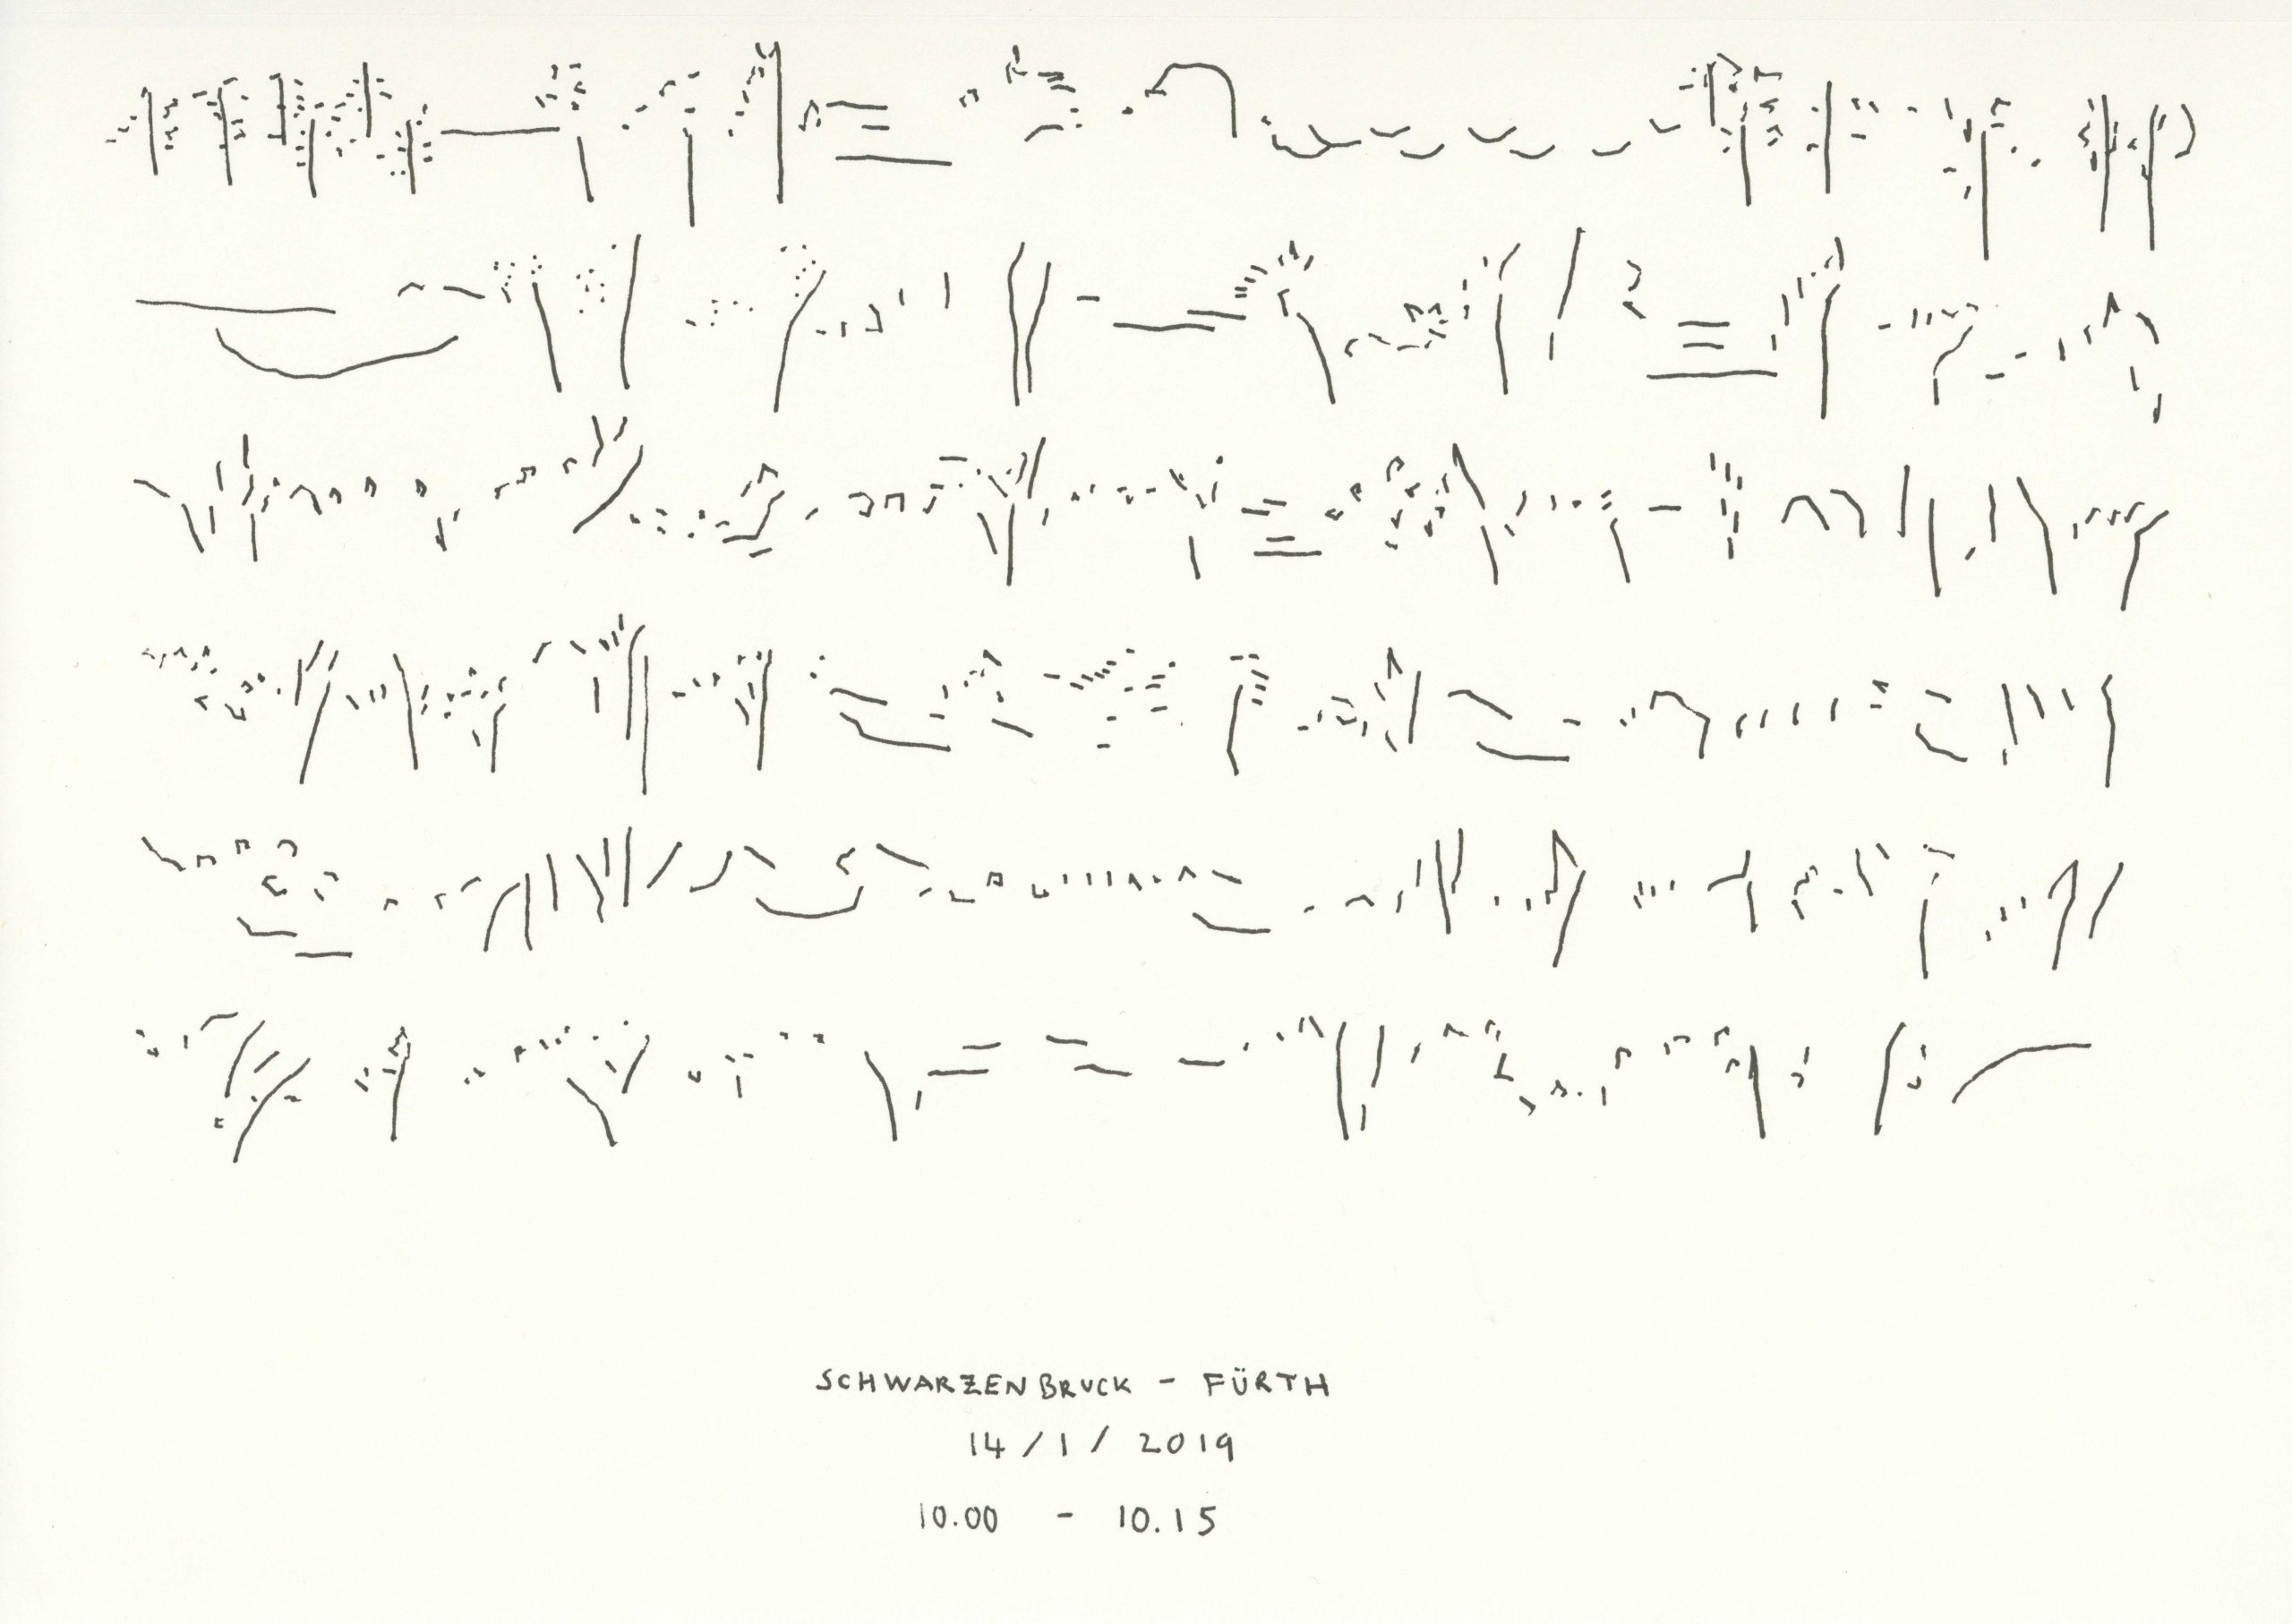 SCHWARZENBRUCK - FÜRTH
14/1/2019
10.00 - 10.15